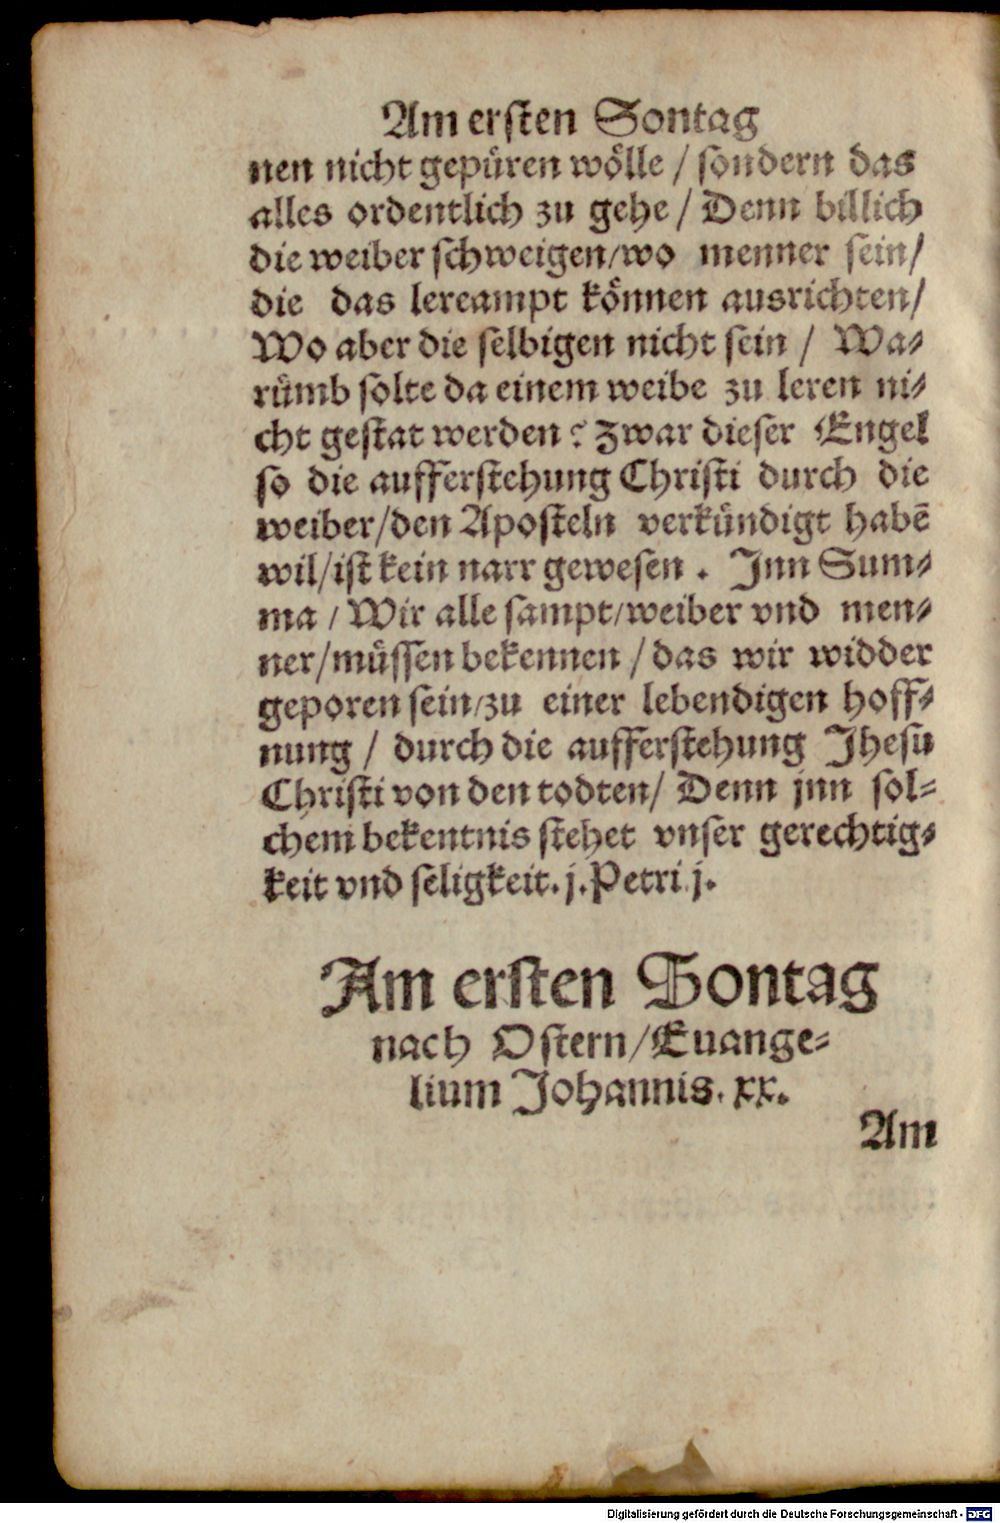 Am ersten Sontag
nen nicht gepüren wölle / sondern das
alles ordentlich zu gehe / Denn billich
die weiber schweigen/wo menner sein/
die das lereampt können ausrichten/
Wo aber die selbigen nicht sein / Wa-
rümb solte da einem weibe zu leren ni-
cht gestat werden? zwar dieser Engel
so die aufferstehung Christi durch die
weiber/den Aposteln verkündigt habē
wil/ist kein narr gewesen . Jnn Sum-
ma / Wir alle sampt/weiber vnd men-
ner/müssen bekennen / das wir widder
geporen sein/zu einer lebendigen hoff-
nung / durch die aufferstehung Jhesu
Christi von den todten/ Denn jnn sol-
chem bekentnis stehet vnser gerechtig-
keit vnd seligkeit. j. Petri j.
Am ersten Sontag
nach Ostern/Euange-
lium Johannis. xx.
Am
Digitalisierung gefördert durch die Deutsche Forschungsgemeinschaft - DFG